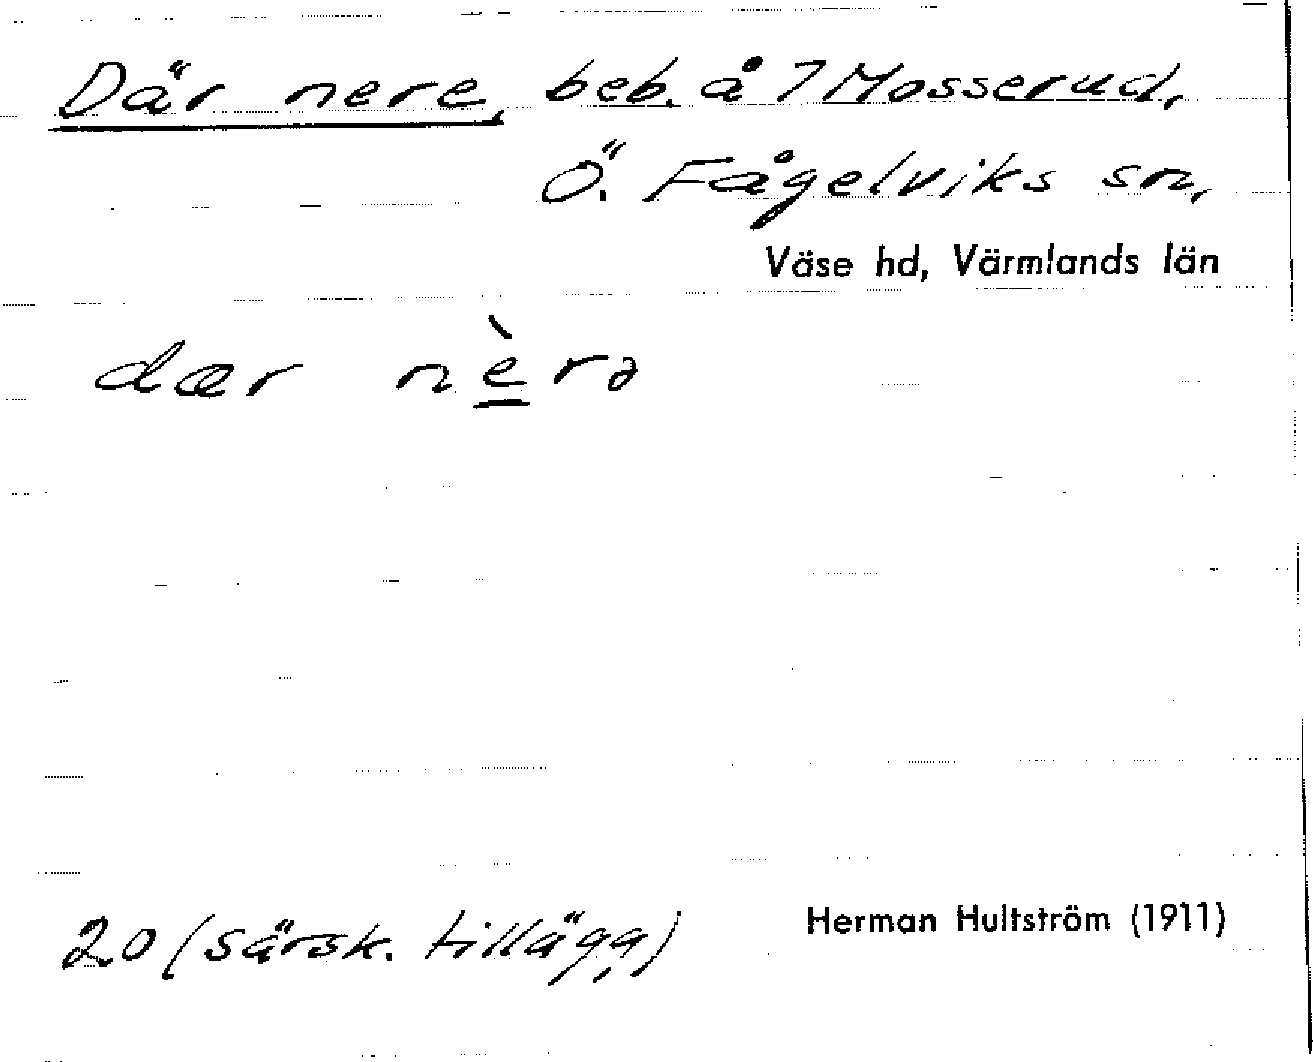 Där nere, beb. å 7 Mosserud,
Ö. Fågelviks sn,
Väse hd, Värmlands län
dær nèrə
20 (särsk. tillägg)
Herman Hultström (1911)